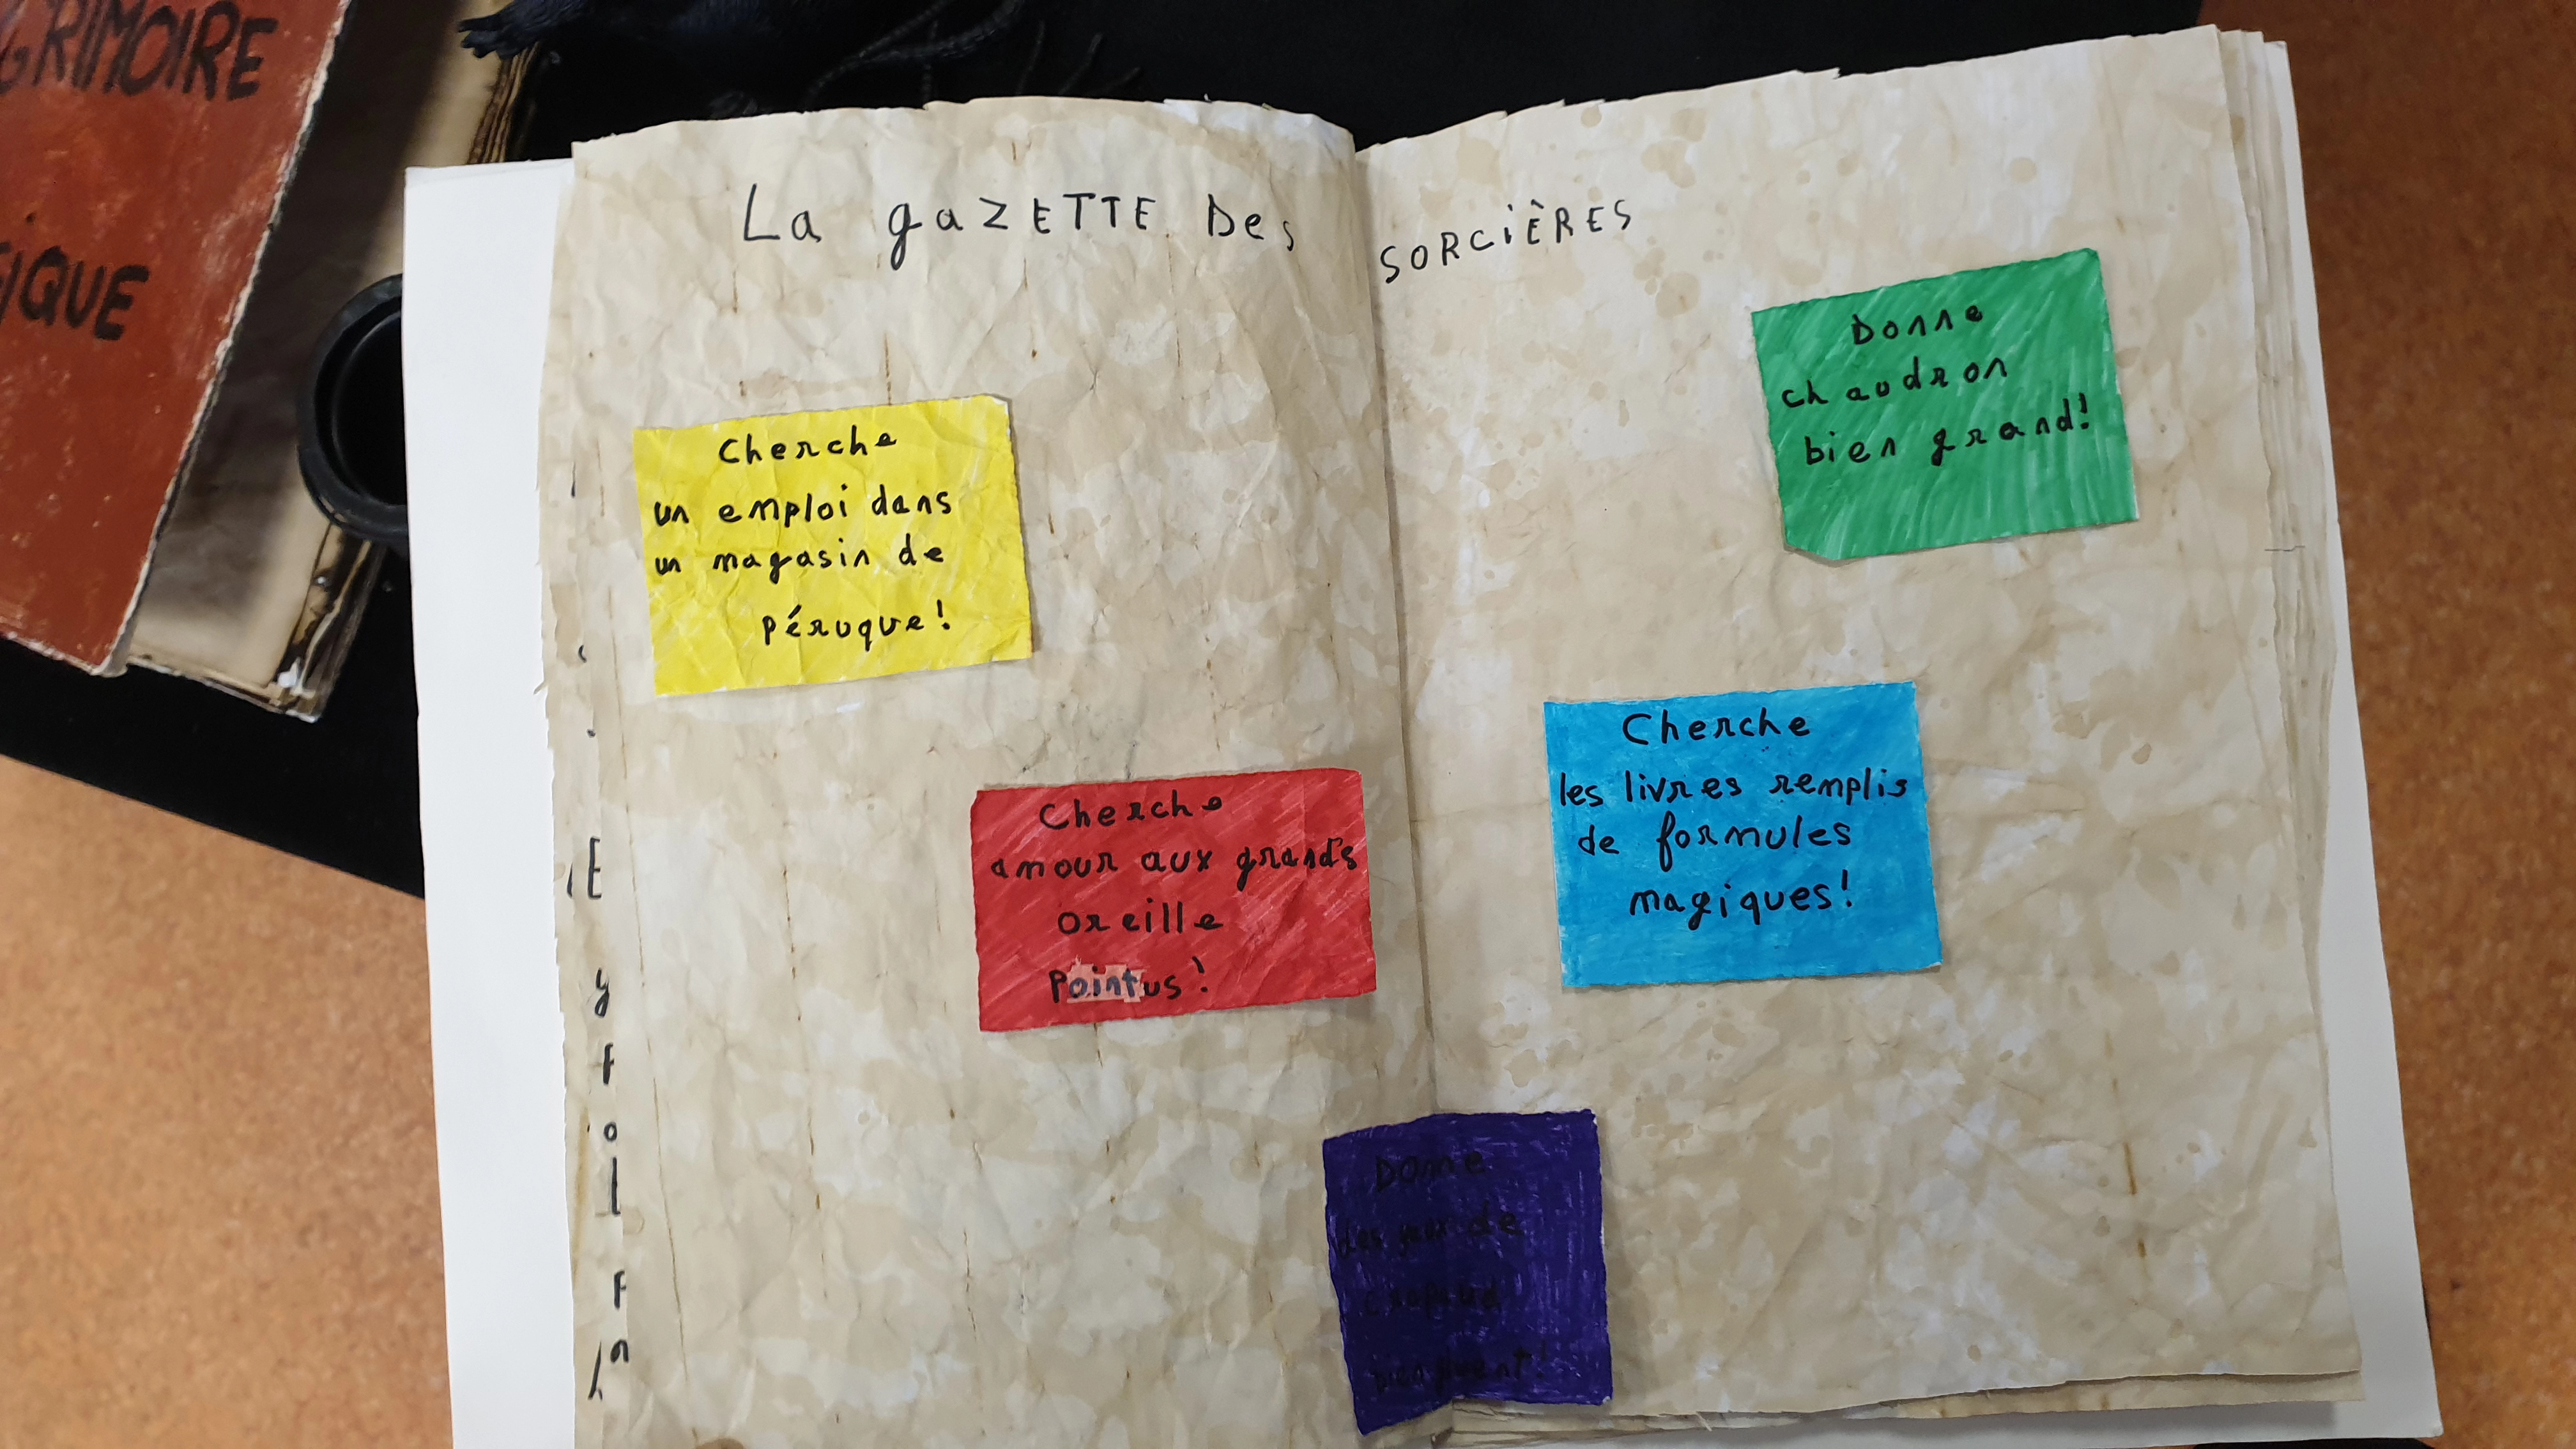 GRIMOIRE
La gaZETTE Des SORCIÈRES
Cherche
un emploi dans
un magasin de
péruque!
Donne
chaudron
bien grand!
Cherche
amour aux grands
oreille
Pointus!
Cherche
les livres remplis
de formules
magiques!
Donne
des de
crapaud